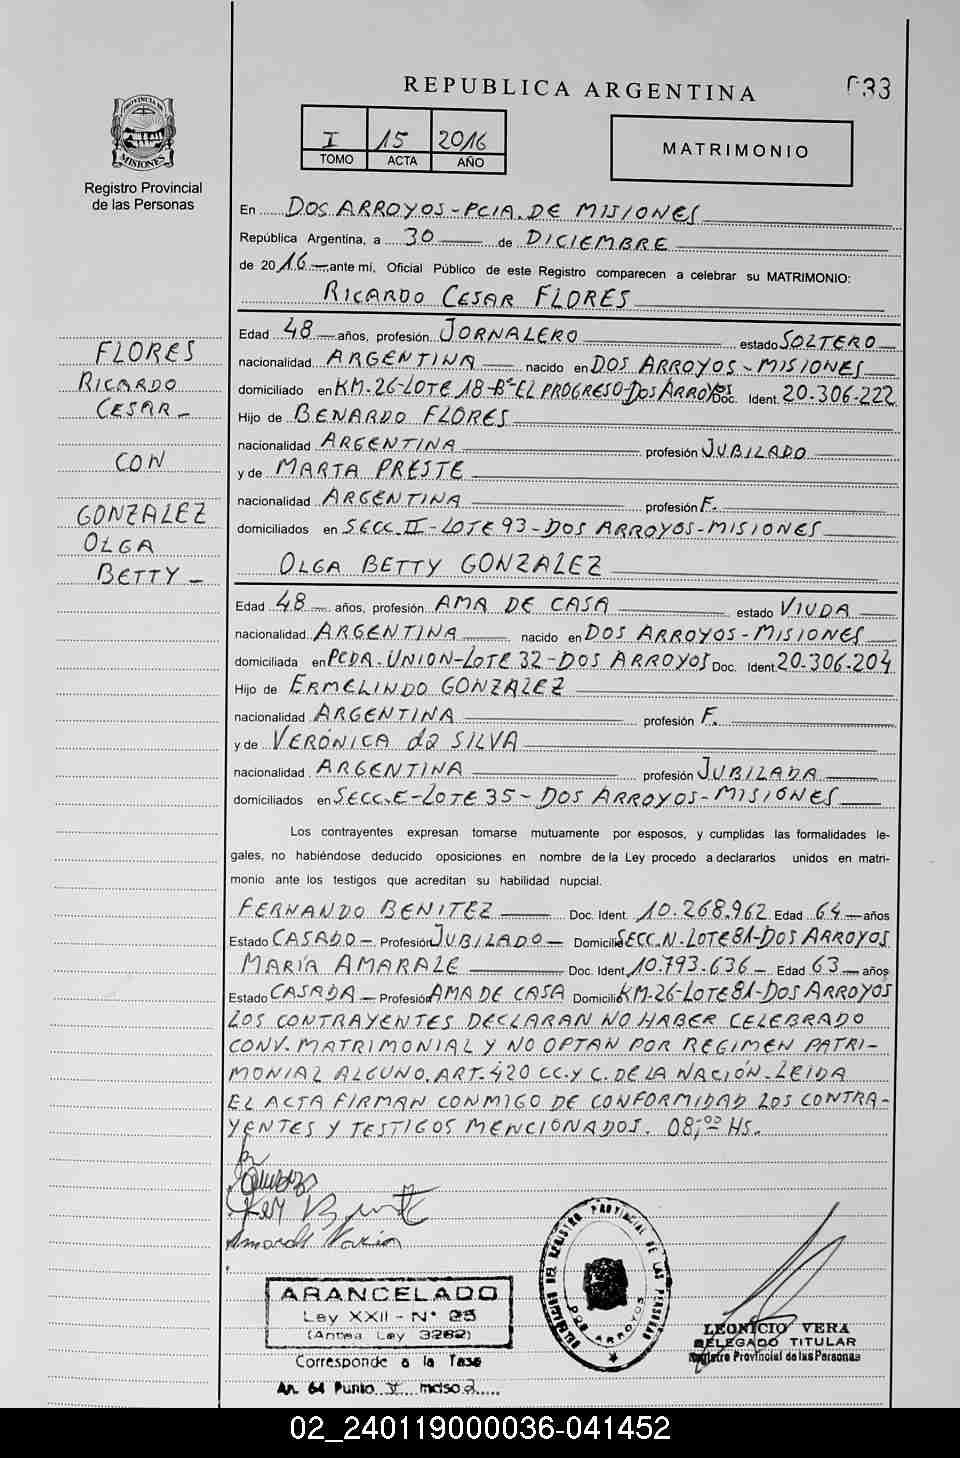 REPUBLICA ARGENTINA
033
I 15 2016
TOMO ACTA AÑO
MATRIMONIO
PROVINCIA DE
MISIONES
Registro Provincial
de las Personas
En DOS ARROYOS-PCIA. DE MISIONES
República Argentina, a 30 de DICIEMBRE
de 2016 ante mí, Oficial Público de este Registro comparecen a celebrar su MATRIMONIO:
RICARDO CESAR FLORES
Edad 48 años, profesión JORNALERO estado SOLTERO
nacionalidad ARGENTINA nacido en DOS ARROYOS-MISIONES
domiciliado en KM.26-LOTE 18-B°-EL PROGRESO-DOS ARROYOS Doc. Ident. 20.306.222
Hijo de BENARDO FLORES
nacionalidad ARGENTINA profesión JUBILADO
y de MARTA PRESTE
nacionalidad ARGENTINA profesión F.
domiciliados en SECC. II-LOTE 93-DOS ARROYOS-MISIONES
FLORES
RICARDO
CESAR-
CON
GONZALEZ
OLGA
BETTY-
OLGA BETTY GONZALEZ
Edad 48 años, profesión AMA DE CASA estado VIUDA
nacionalidad ARGENTINA nacido en DOS ARROYOS-MISIONES
domiciliada en PCDA. UNION-LOTE 32-DOS ARROYOS Doc. Ident. 20.306.204
Hijo de ERMELINDO GONZALEZ
nacionalidad ARGENTINA profesión F.
y de VERÓNICA da SILVA
nacionalidad ARGENTINA profesión JUBILADA
domiciliados en SECC.E-LOTE 35-DOS ARROYOS-MISIONES
Los contrayentes expresan tomarse mutuamente por esposos, y cumplidas las formalidades le-
gales, no habiéndose deducido oposiciones en nombre de la Ley procedo a declararlos unidos en matri-
monio ante los testigos que acreditan su habilidad nupcial.
FERNANDO BENITEZ Doc. Ident. 10.268.962 Edad 64 años
Estado CASADO- Profesión JUBILADO- Domicilio SECC.N-LOTE 81-DOS ARROYOS
MARÍA AMARALE Doc. Ident. 10.793.636- Edad 63 años
Estado CASADA- Profesión AMA DE CASA Domicilio KM-26-LOTE 81-DOS ARROYOS
LOS CONTRAYENTES DECLARAN NO HABER CELEBRADO
CONV. MATRIMONIAL Y NO OPTAN POR REGIMEN PATRI-
MONIAL ALGUNO. ART. 420 CC. y C. DE LA NACIÓN. LEIDA
EL ACTA FIRMAN CONMIGO DE CONFORMIDAD LOS CONTRA-
YENTES Y TESTIGOS MENCIONADOS. 08;00 HS.
ARANCELADO
Ley XXII - N° 25
(Antes Ley 3262)
Corresponde a la Tasa
Ar. 64 Punto V inciso 2
DEL REGISTRO PROVINCIAL DE LAS PERSONAS
DOS ARROYOS
LEONICIO VERA
DELEGADO TITULAR
Registro Provincial de las Personas
02_240119000036-041452